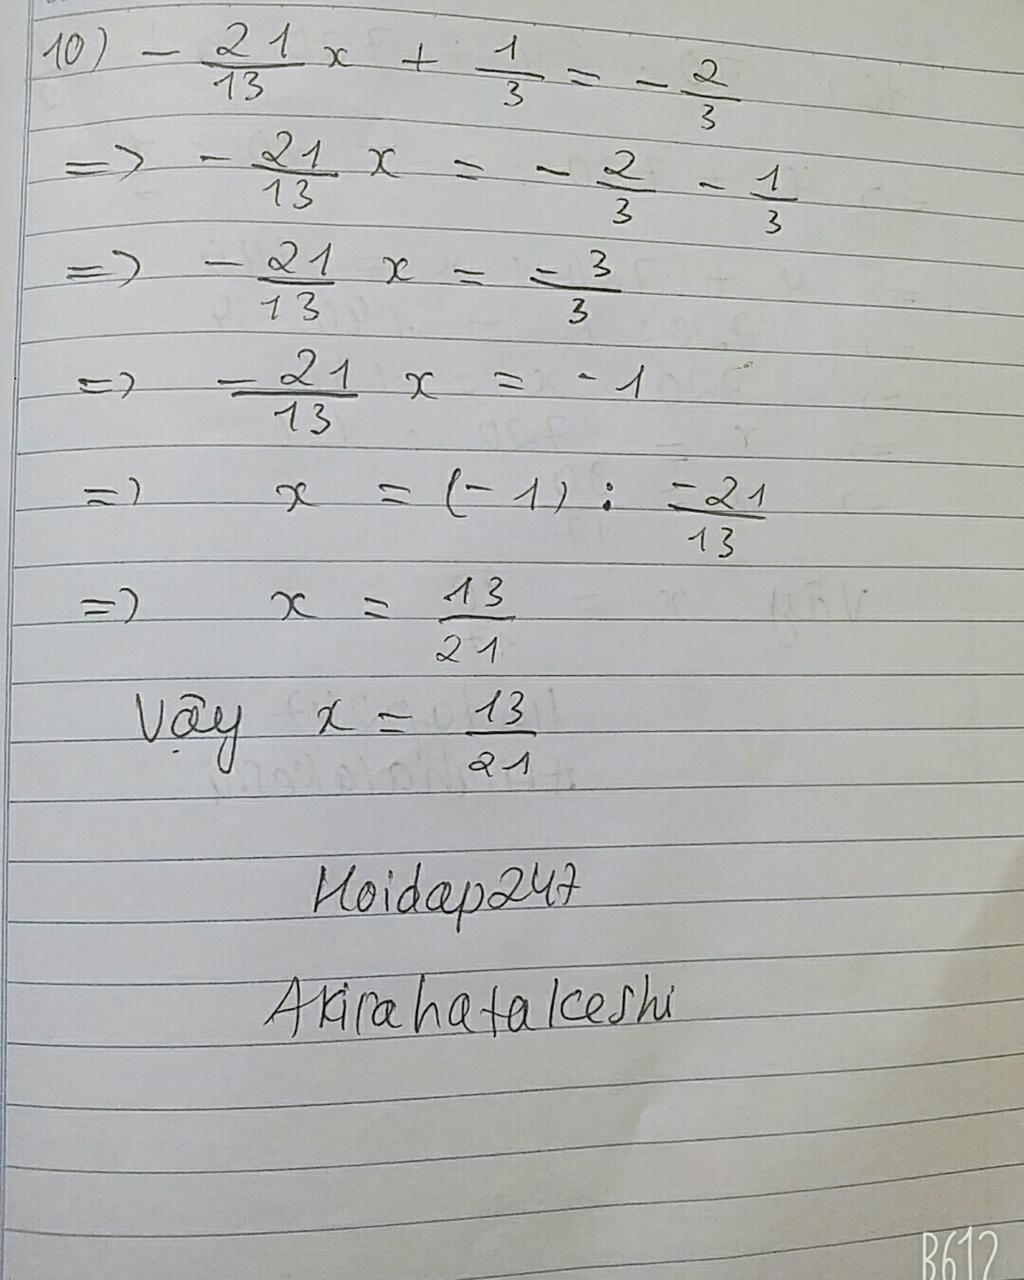 10) - 21/13 x + 1/3 = - 2/3
=> - 21/13 x = - 2/3 - 1/3
=> - 21/13 x = -3/3
=> - 21/13 x = - 1
=> x = (- 1) : -21/13
=> x = 13/21
Vậy x = 13/21
Hoidap247
Akirahatakeshi
B612